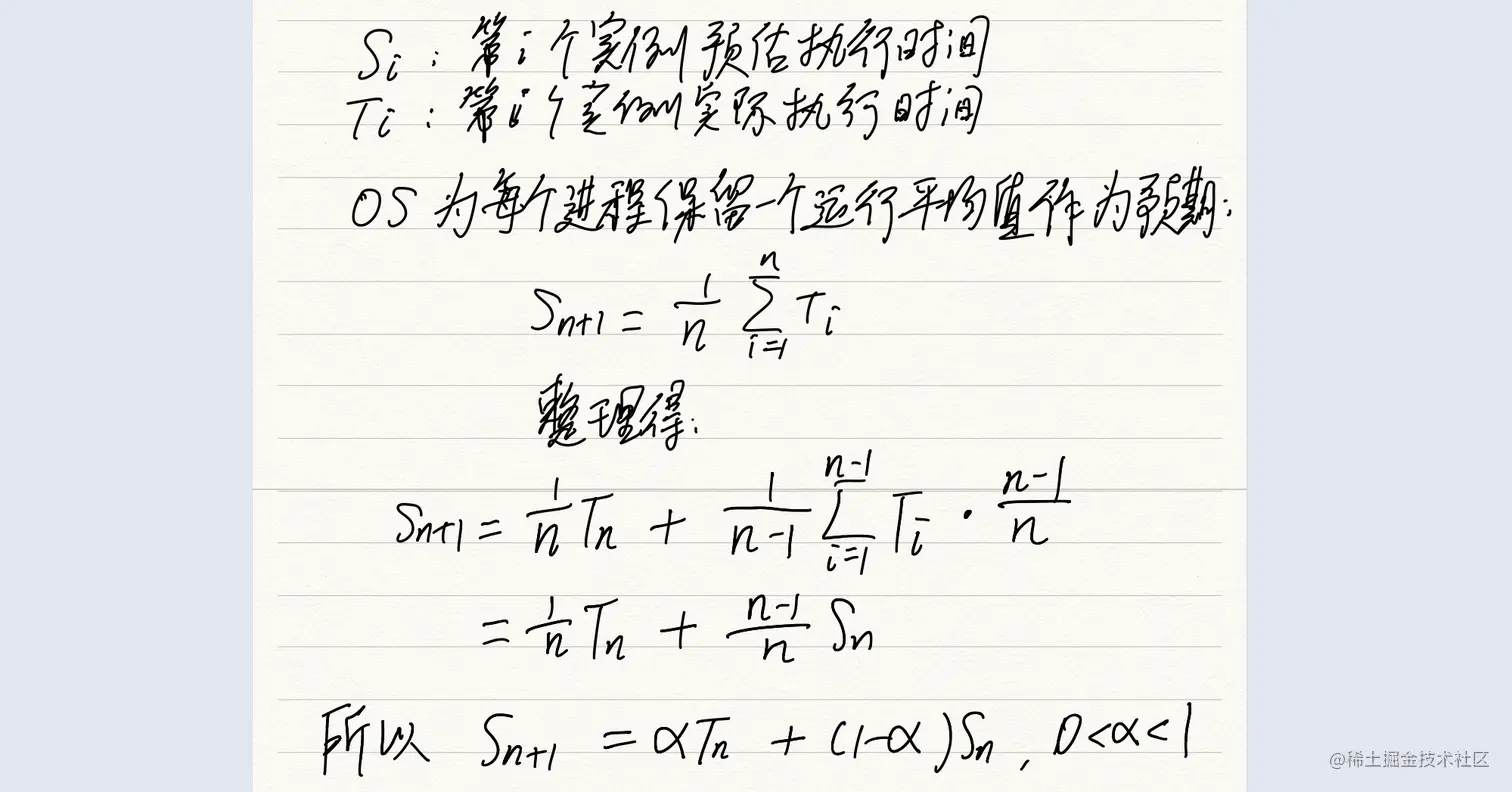 Si：第i个实例预估执行时间
Ti：第i个实例实际执行时间
OS 为每个进程保留一个运行平均值作为预期：
Sₙ₊₁ = 1/n ∑ᵢ₌₁ⁿ Tᵢ
整理得：
Sₙ₊₁ = 1/n Tₙ + 1/(n-1) ∑ᵢ₌₁ⁿ⁻¹ Tᵢ · (n-1)/n
= 1/n Tₙ + (n-1)/n Sₙ
所以 Sₙ₊₁ = αTₙ + (1-α)Sₙ, 0<α<1
@稀土掘金技术社区